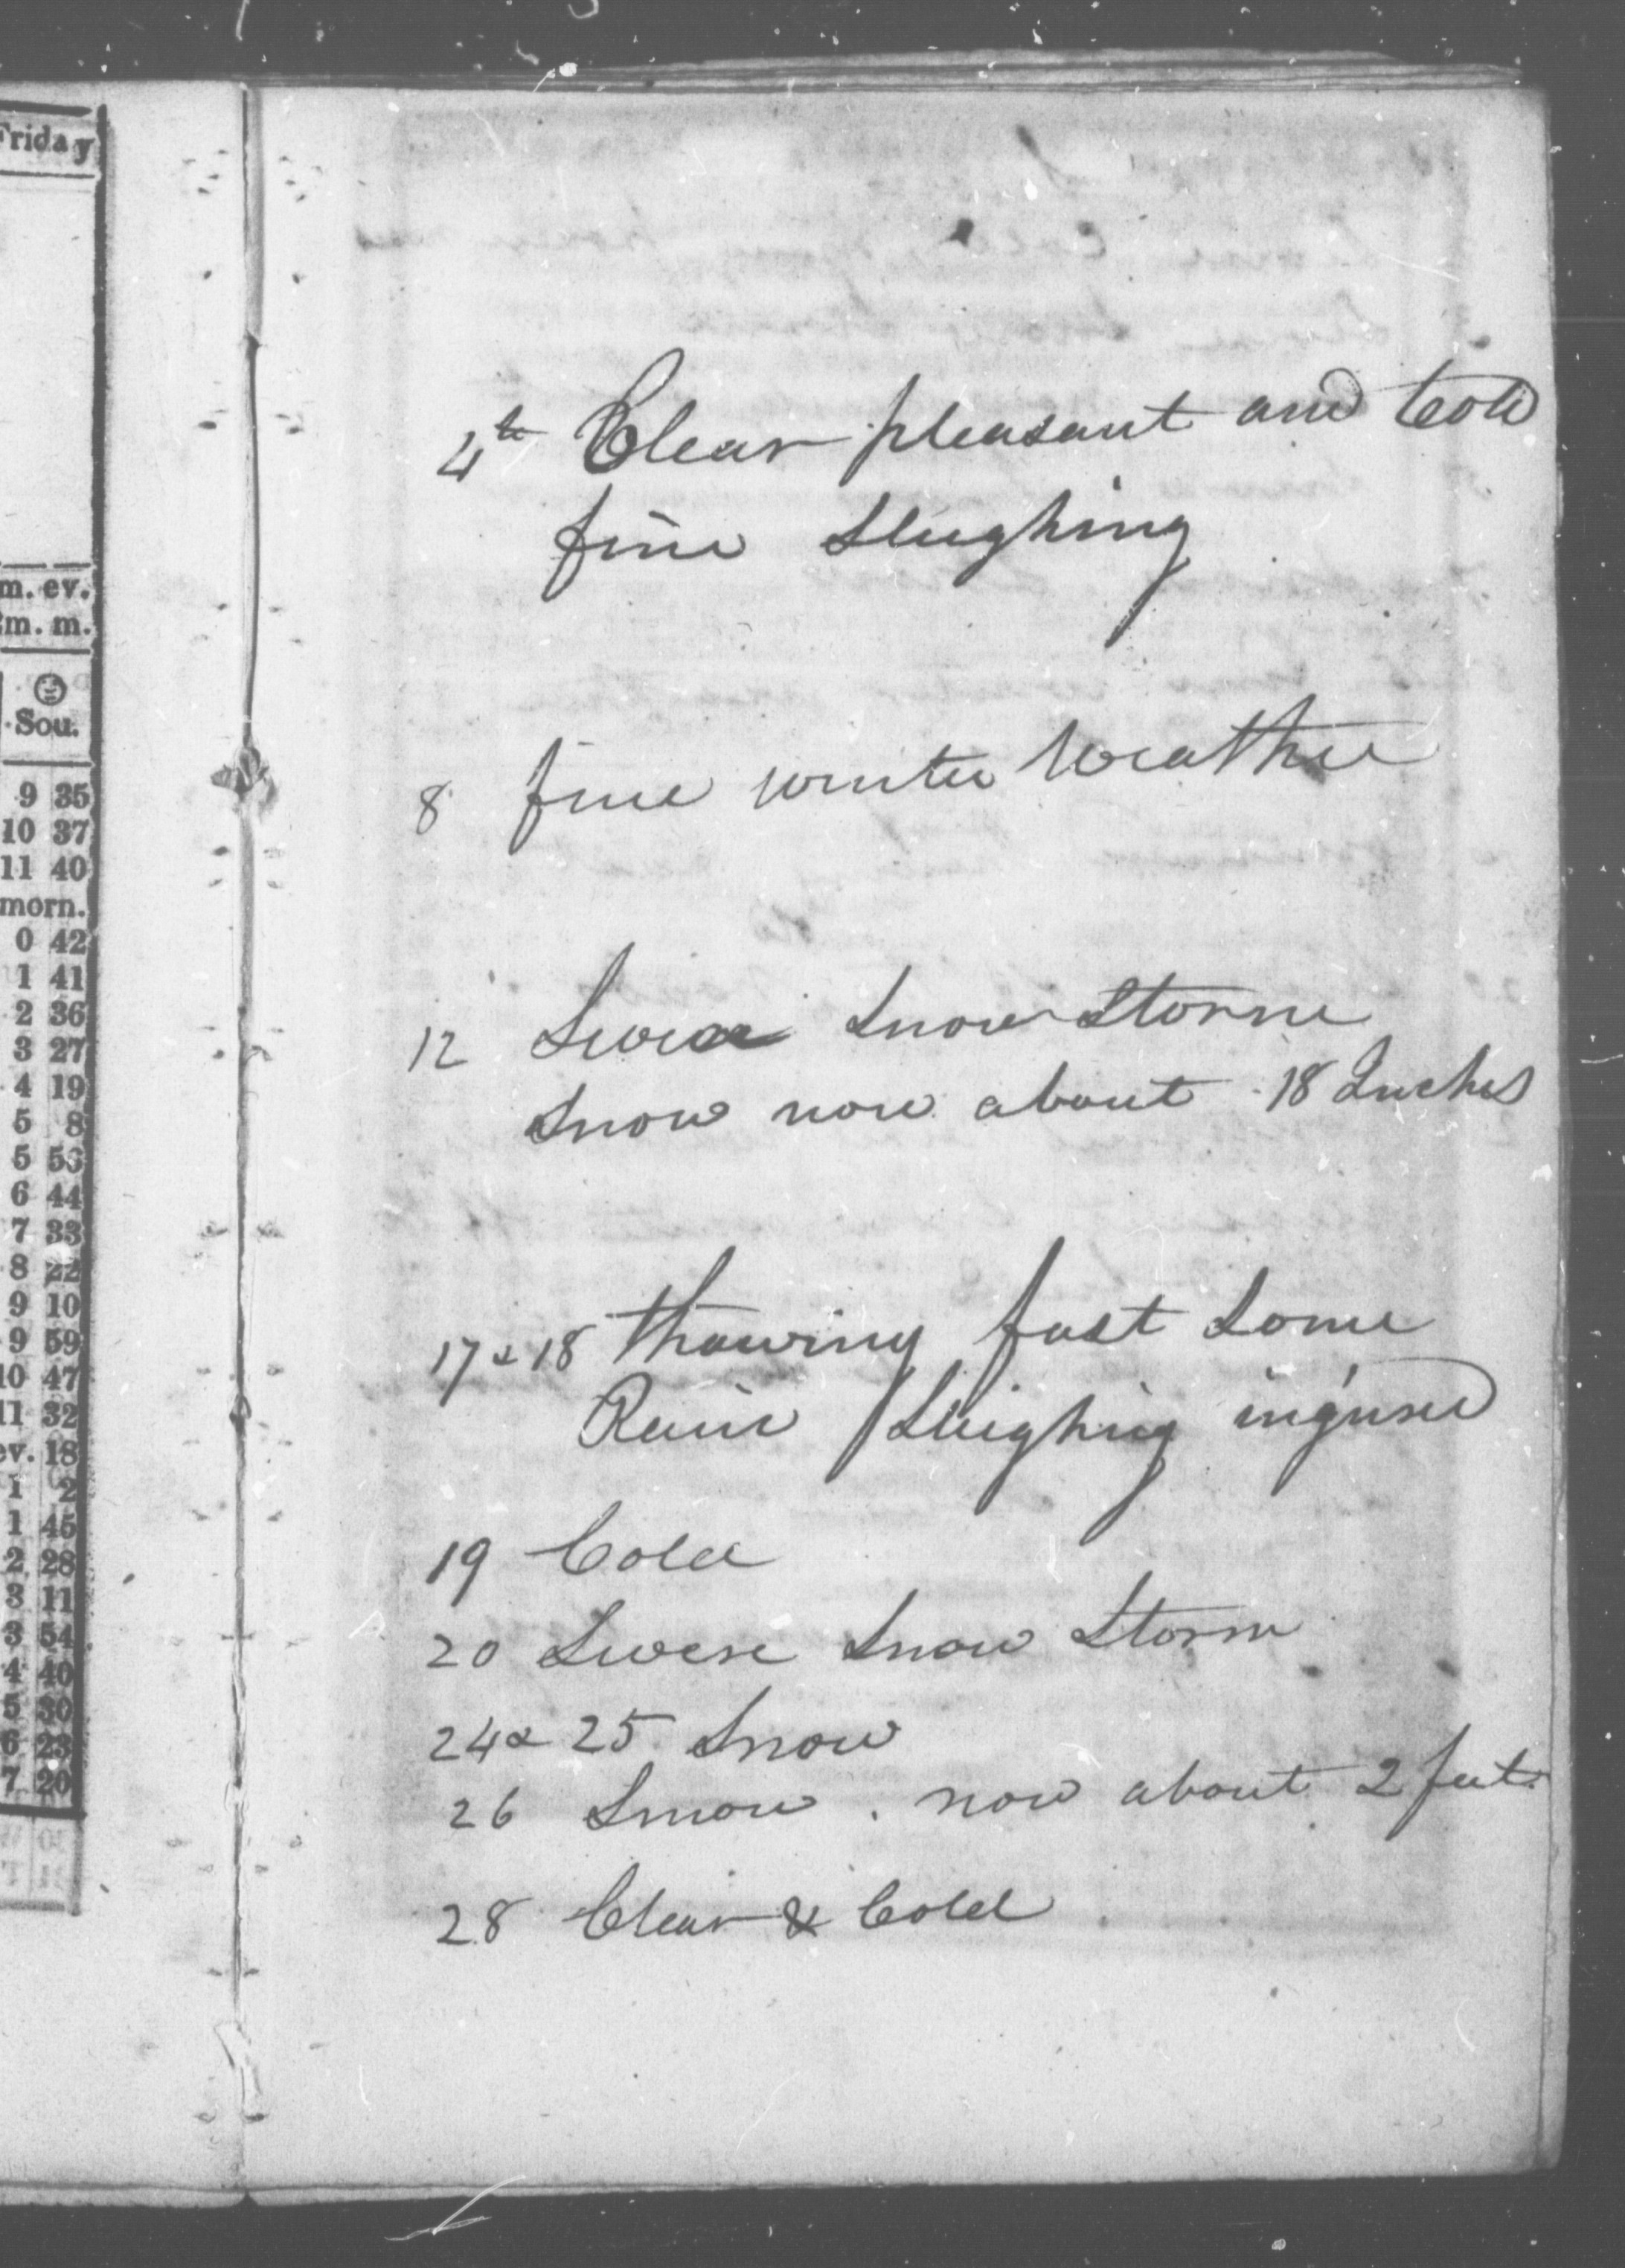 Friday
m. ev.
m. m.
Sou.
9 35
10 37
11 40
morn.
0 42
1 41
2 36
3 27
4 19
5 8
5 53
6 44
7 33
8 22
9 10
9 59
10 47
11 32
ev. 18
1 2
1 45
2 28
3 11
3 54
4 40
5 30
6 23
7 20
4th Clear pleasant and Cold
fine Sleighing
8 fine winter Weather
12 Severe Snow Storm
Snow now about 18 Inches
17 & 18 Thawing fast Some
Rain Sleighing injured
19 Cold
20 Severe Snow Storm
24 & 25 Snow
26 Snow. now about 2 feet
28 Clear & Cold